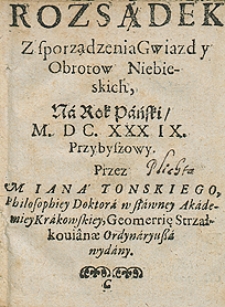 ROZSĄDEK
Z sporządzenia Gwiazd y
Obrotow Niebie-
skich,
Ná Rok Páński/
M. DC. XXX IX.
Przybyszowy.
Przez
M IANA TONSKIEGO,
Philosophiey Doktorá w sławney Akáde-
miey Krákowskiey, Geometrię Strzał-
kouiánæ Ordynáryuszá
wydány.
C